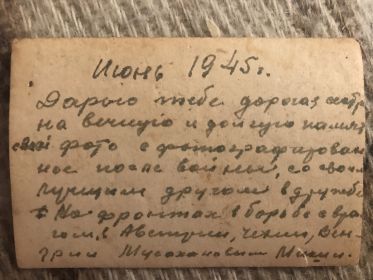 Июнь 1945 г.
Дарю тебе дорогая сестра
на вечную и долгую память
своё фото сфотографирован
ное после войны, со своим
лучшим другом в дружбе
На фронтах в борьбе с вра
гом, в Австрии, Чехии, Вен
грии